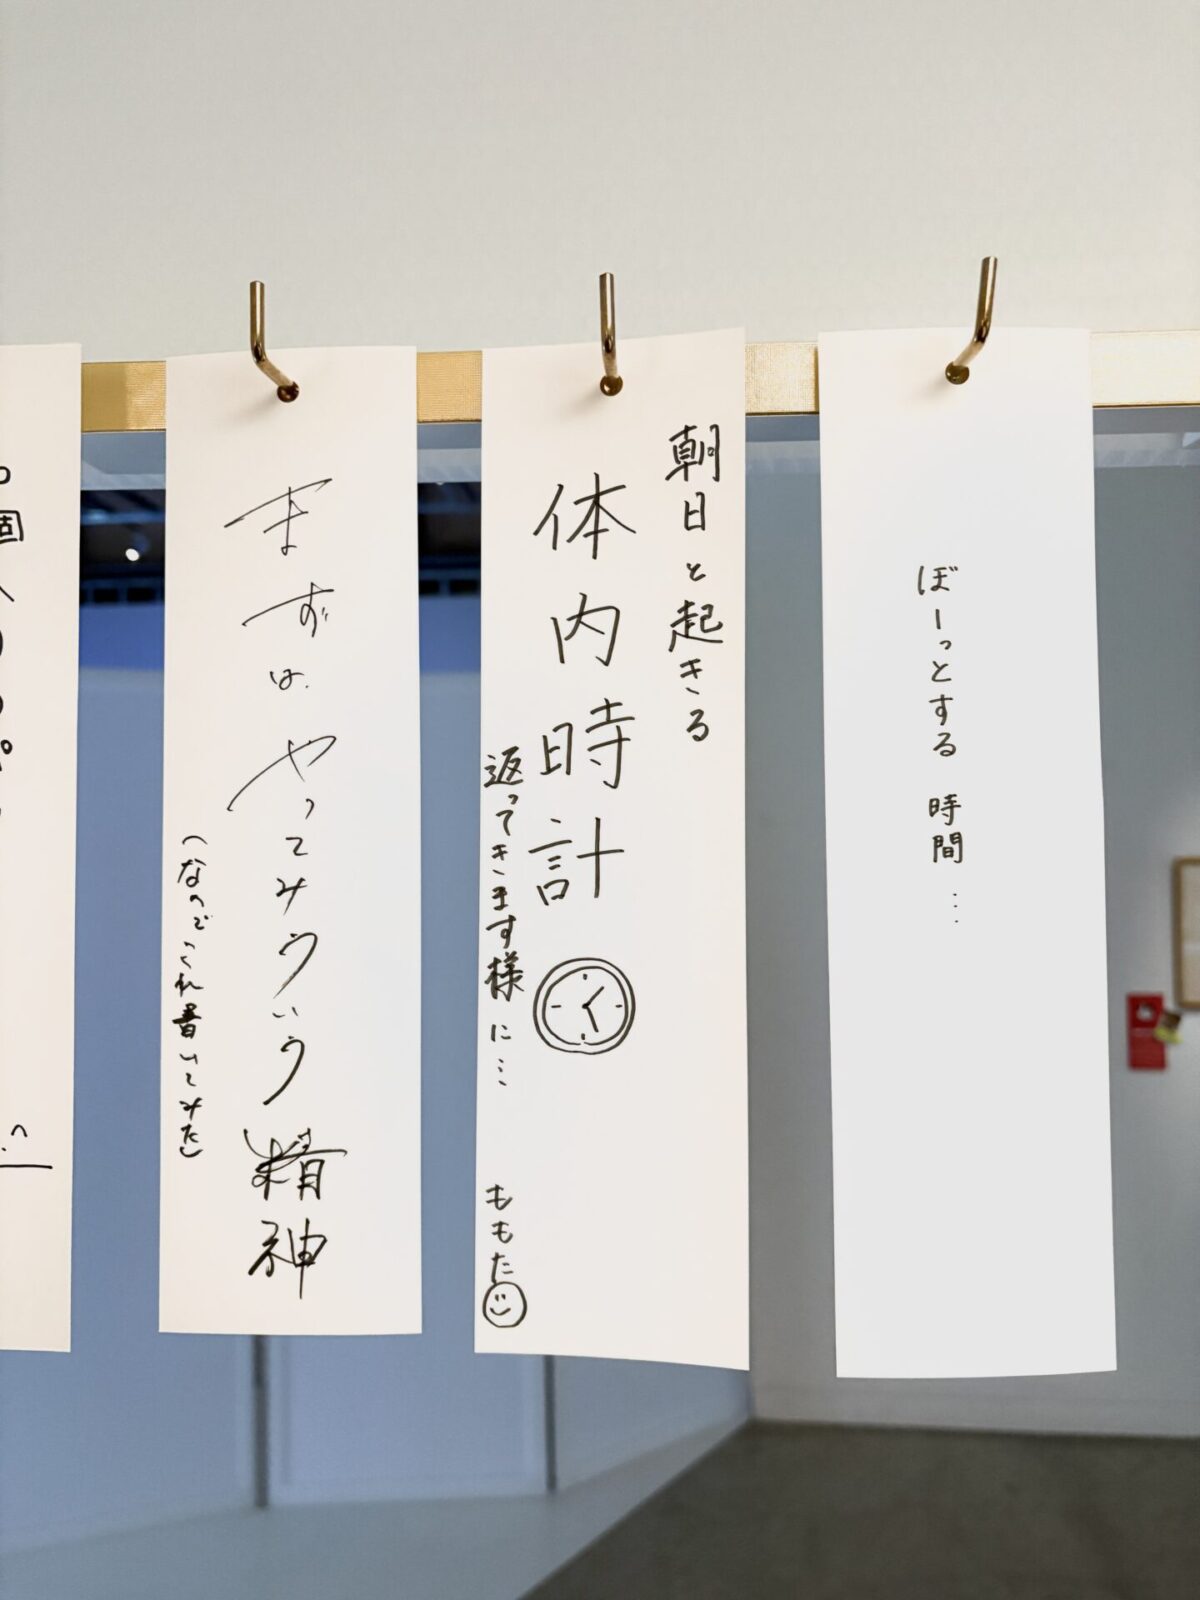 ぼーっとする 時間…
朝日と起きる
体内時計
返ってきます様に…
ももた
まずは、やってみういう精神
(なのでこれ書いてみた)
個